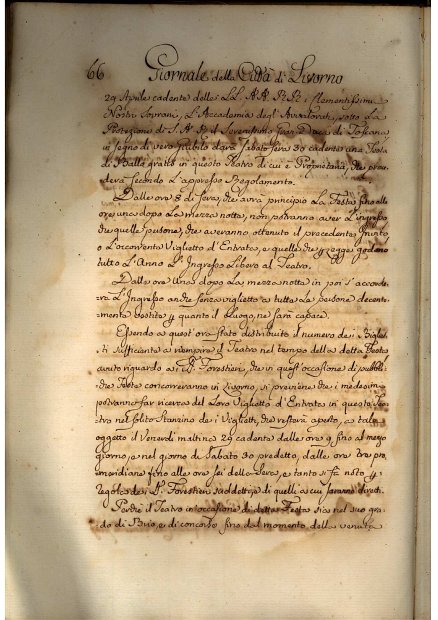 66 Giornale della Città di Livorno
29 Aprile cadente delle LL. AA. RR. i clementissimi
Nostri Sovrani, L'Accademia degl'Avvalorati, sotto La
Protezione di S. A. R. il Serenissimo Gran Duca di Toscana,
in segno di vero giubilo darà Sabato sera 30 cadente una Festa
di Ballo gratis in questo Teatro di cui è Proprietaria, che proce-
derà secondo L'appresso Regolamento.
Dalle ore 8 di sera, che avrà principio La Festa fino alle
ore una dopo La mezza notte, non potranno aver L'ingresso
che quelle persone, che averanno ottenuto il precedente Invito
o L'occorrente Viglietto d'Entrata, e quelle che p legge godono
tutto L'Anno L'Ingresso Libero al Teatro.
Dalle ore Una dopo La mezza notte in poi s'accorde-
rà L'Ingresso anche senza viglietto a tutte Le persone decente-
mente vestite p quanto il Luogo ne sarà capace.
Essendo a quest'ora stato distribuito il numero dei Vigliet-
ti sufficiente a riempire il Teatro nel tempo della detta Festa
avuto riguardo ai SS. Forestieri, che in quest'occasione di pubbli-
che Feste concorreranno in Livorno, si previene che i medesimi
potranno far ricerca del Loro Viglietto d'Entrata in questo Tea-
tro nel solito Stanzino dei Viglietti, che resterà aperto, a tale
oggetto il Venerdì mattina 29 cadente dalle ore 9 fino al mezzo
giorno, e nel giorno di Sabato 30 predetto, dalle ore tre po-
meridiane fino alle ore sei della sera, e tanto si fa noto p
regola dei SS. Forestieri suddetti, e di quelli a cui saranno diretti.
Perché il Teatro in occasione di detta Festa sia nel suo gra-
do di Brio, e di concorso fino dal momento della venuta